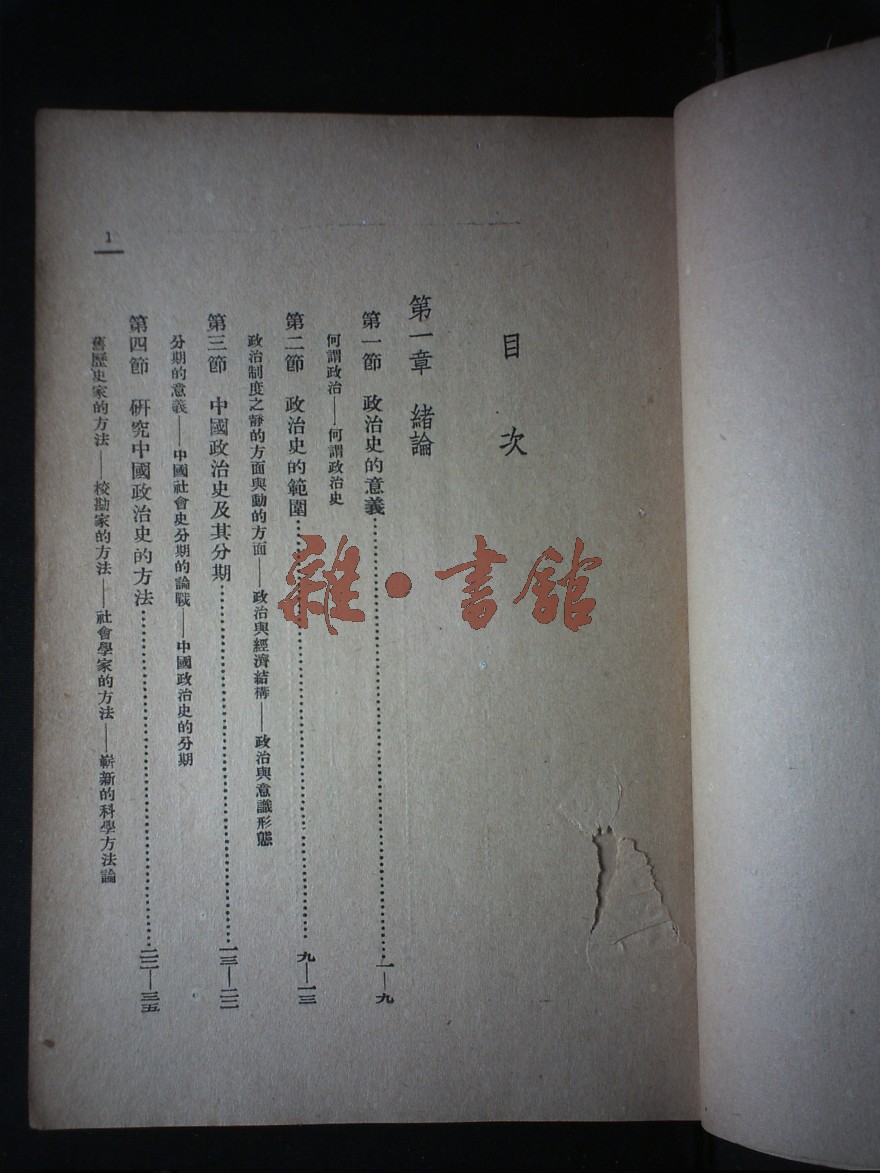 目次
第一章 緒論
第一節 政治史的意義……一—九
何謂政治——何謂政治史
第二節 政治史的範圍……九—一三
政治制度之靜的方面與動的方面——政治與經濟結構——政治與意識形態
第三節 中國政治史及其分期……一三—二二
分期的意義——中國社會史分期的論戰——中國政治史的分期
第四節 研究中國政治史的方法……二二—三五
舊歷史家的方法——校勘家的方法——社會學家的方法——嶄新的科學方法論
1
雜·書館